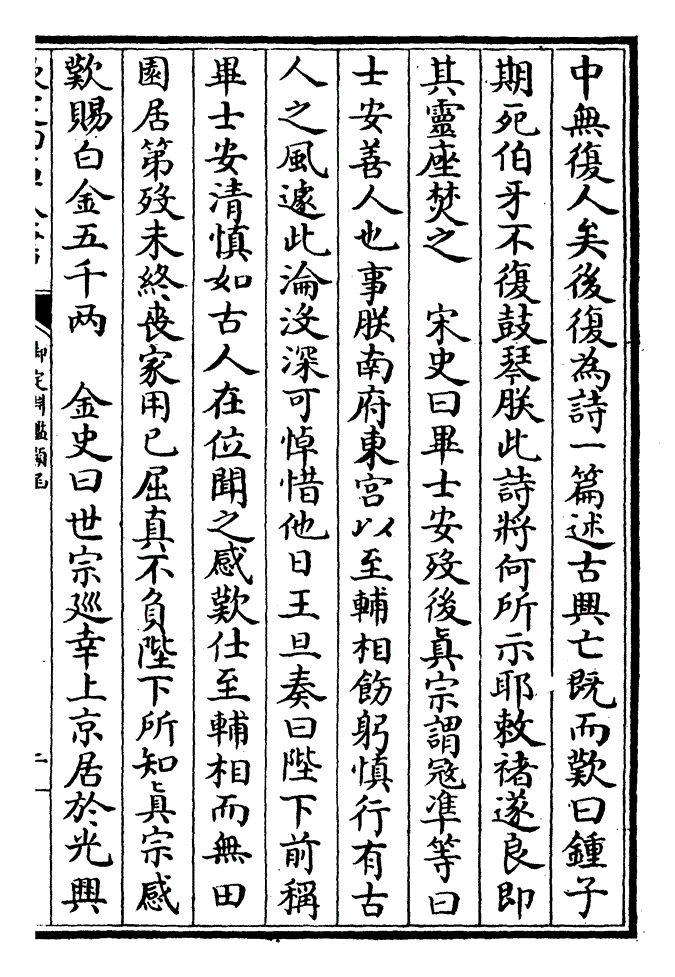 中無復人矣後復為詩一篇述古興亡既而歎曰鍾子
期死伯牙不復鼓琴朕此詩將何所示耶敕褚遂良即
其靈座焚之　宋史曰畢士安歿後眞宗謂冦凖等曰
士安善人也事朕南府東宮以至輔相飭躬慎行有古
人之風遽此淪没深可悼惜他日王旦奏曰陛下前稱
畢士安清慎如古人在位聞之感歎仕至輔相而無田
園居第歿未終喪家用已屈真不負陛下所知眞宗感
歎賜白金五千两　金史曰世宗廵幸上京居於光興
御定淵鑑類函